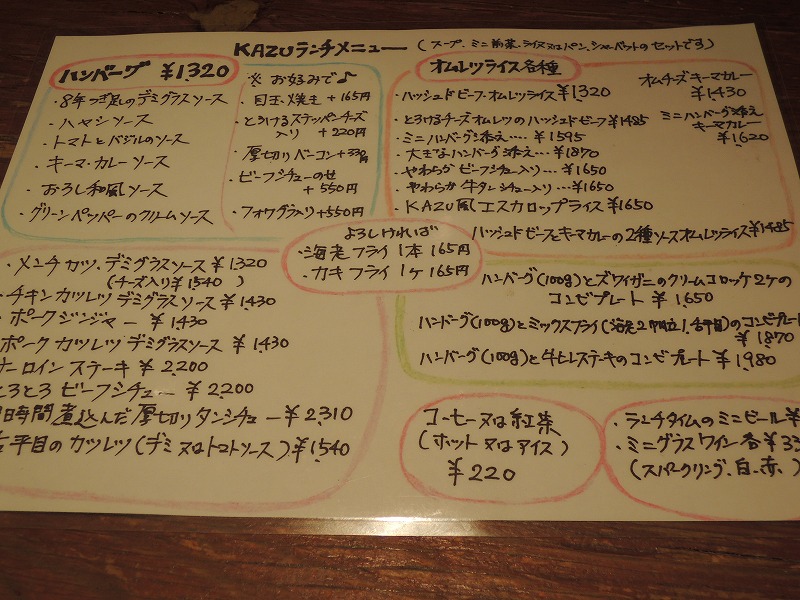 KAZUランチメニュー (スープ、ミニ前菜、ライス又はパン、シャーベットのセットです)
ハンバーグ ¥1320
・8年つぎ足しのデミグラスソース
・ハヤシソース
・トマトとバジルのソース
・キーマ・カレーソース
・おろし和風ソース
・グリーンペッパーのクリームソース
※ お好みで♪
・目玉焼き +165円
・とろけるステッパーチーズ
入り +220円
・厚切りベーコン+330円
・ビーフシチューのせ
+550円
・フォワグラ入り+550円
オムレツライス各種
・ハッシュドビーフ・オムレツライス ¥1320
・とろけるチーズオムレツのハッシュドビーフ ¥1485
・ミニハンバーグ添え‥‥ ¥1595
・大きなハンバーグ添え… ¥1870
・やわらかビーフシチュー入り… ¥1650
・やわらか牛タンシチュー入り… ¥1650
・KAZU風エスカロップライス ¥1650
オムチーズキーマカレー
¥1430
ミニハンバーグ添え
キーマカレー
¥1620
ハッシュドビーフとキーマカレーの2種ソースオムレツライス ¥1485
よろしければ
・海老フライ 1本 165円
・カキフライ 1ヶ 165円
・メンチカツ、デミグラスソース ¥1320
(チーズ入り ¥1540)
・チキンカツレツ デミグラスソース ¥1,430
・ポークジンジャー ¥1430
ポークカツレツデミグラスソース ¥1430
サーロインステーキ ¥2200
とろとろビーフシチュー ¥2,200
時間煮込んだ厚切りタンシチュー ¥2,310
平目のカツレツ(デミ又はトマトソース) ¥1,540
ハンバーグ(100g)とズワイガニのクリームコロッケ2ケの
コンビプレート ¥1,650
ハンバーグ(100g)とミックスフライ(海老2、帆立1、舌平目)のコンビプレート
¥1870
ハンバーグ(100g)と牛ヒレステーキのコンビプレート ¥1,980
コーヒー又は紅茶
(ホット又はアイス)
¥220
・ランチタイムのミニビール ¥
・ミニグラスワイン各 ¥33
(スパークリング、白、赤、)